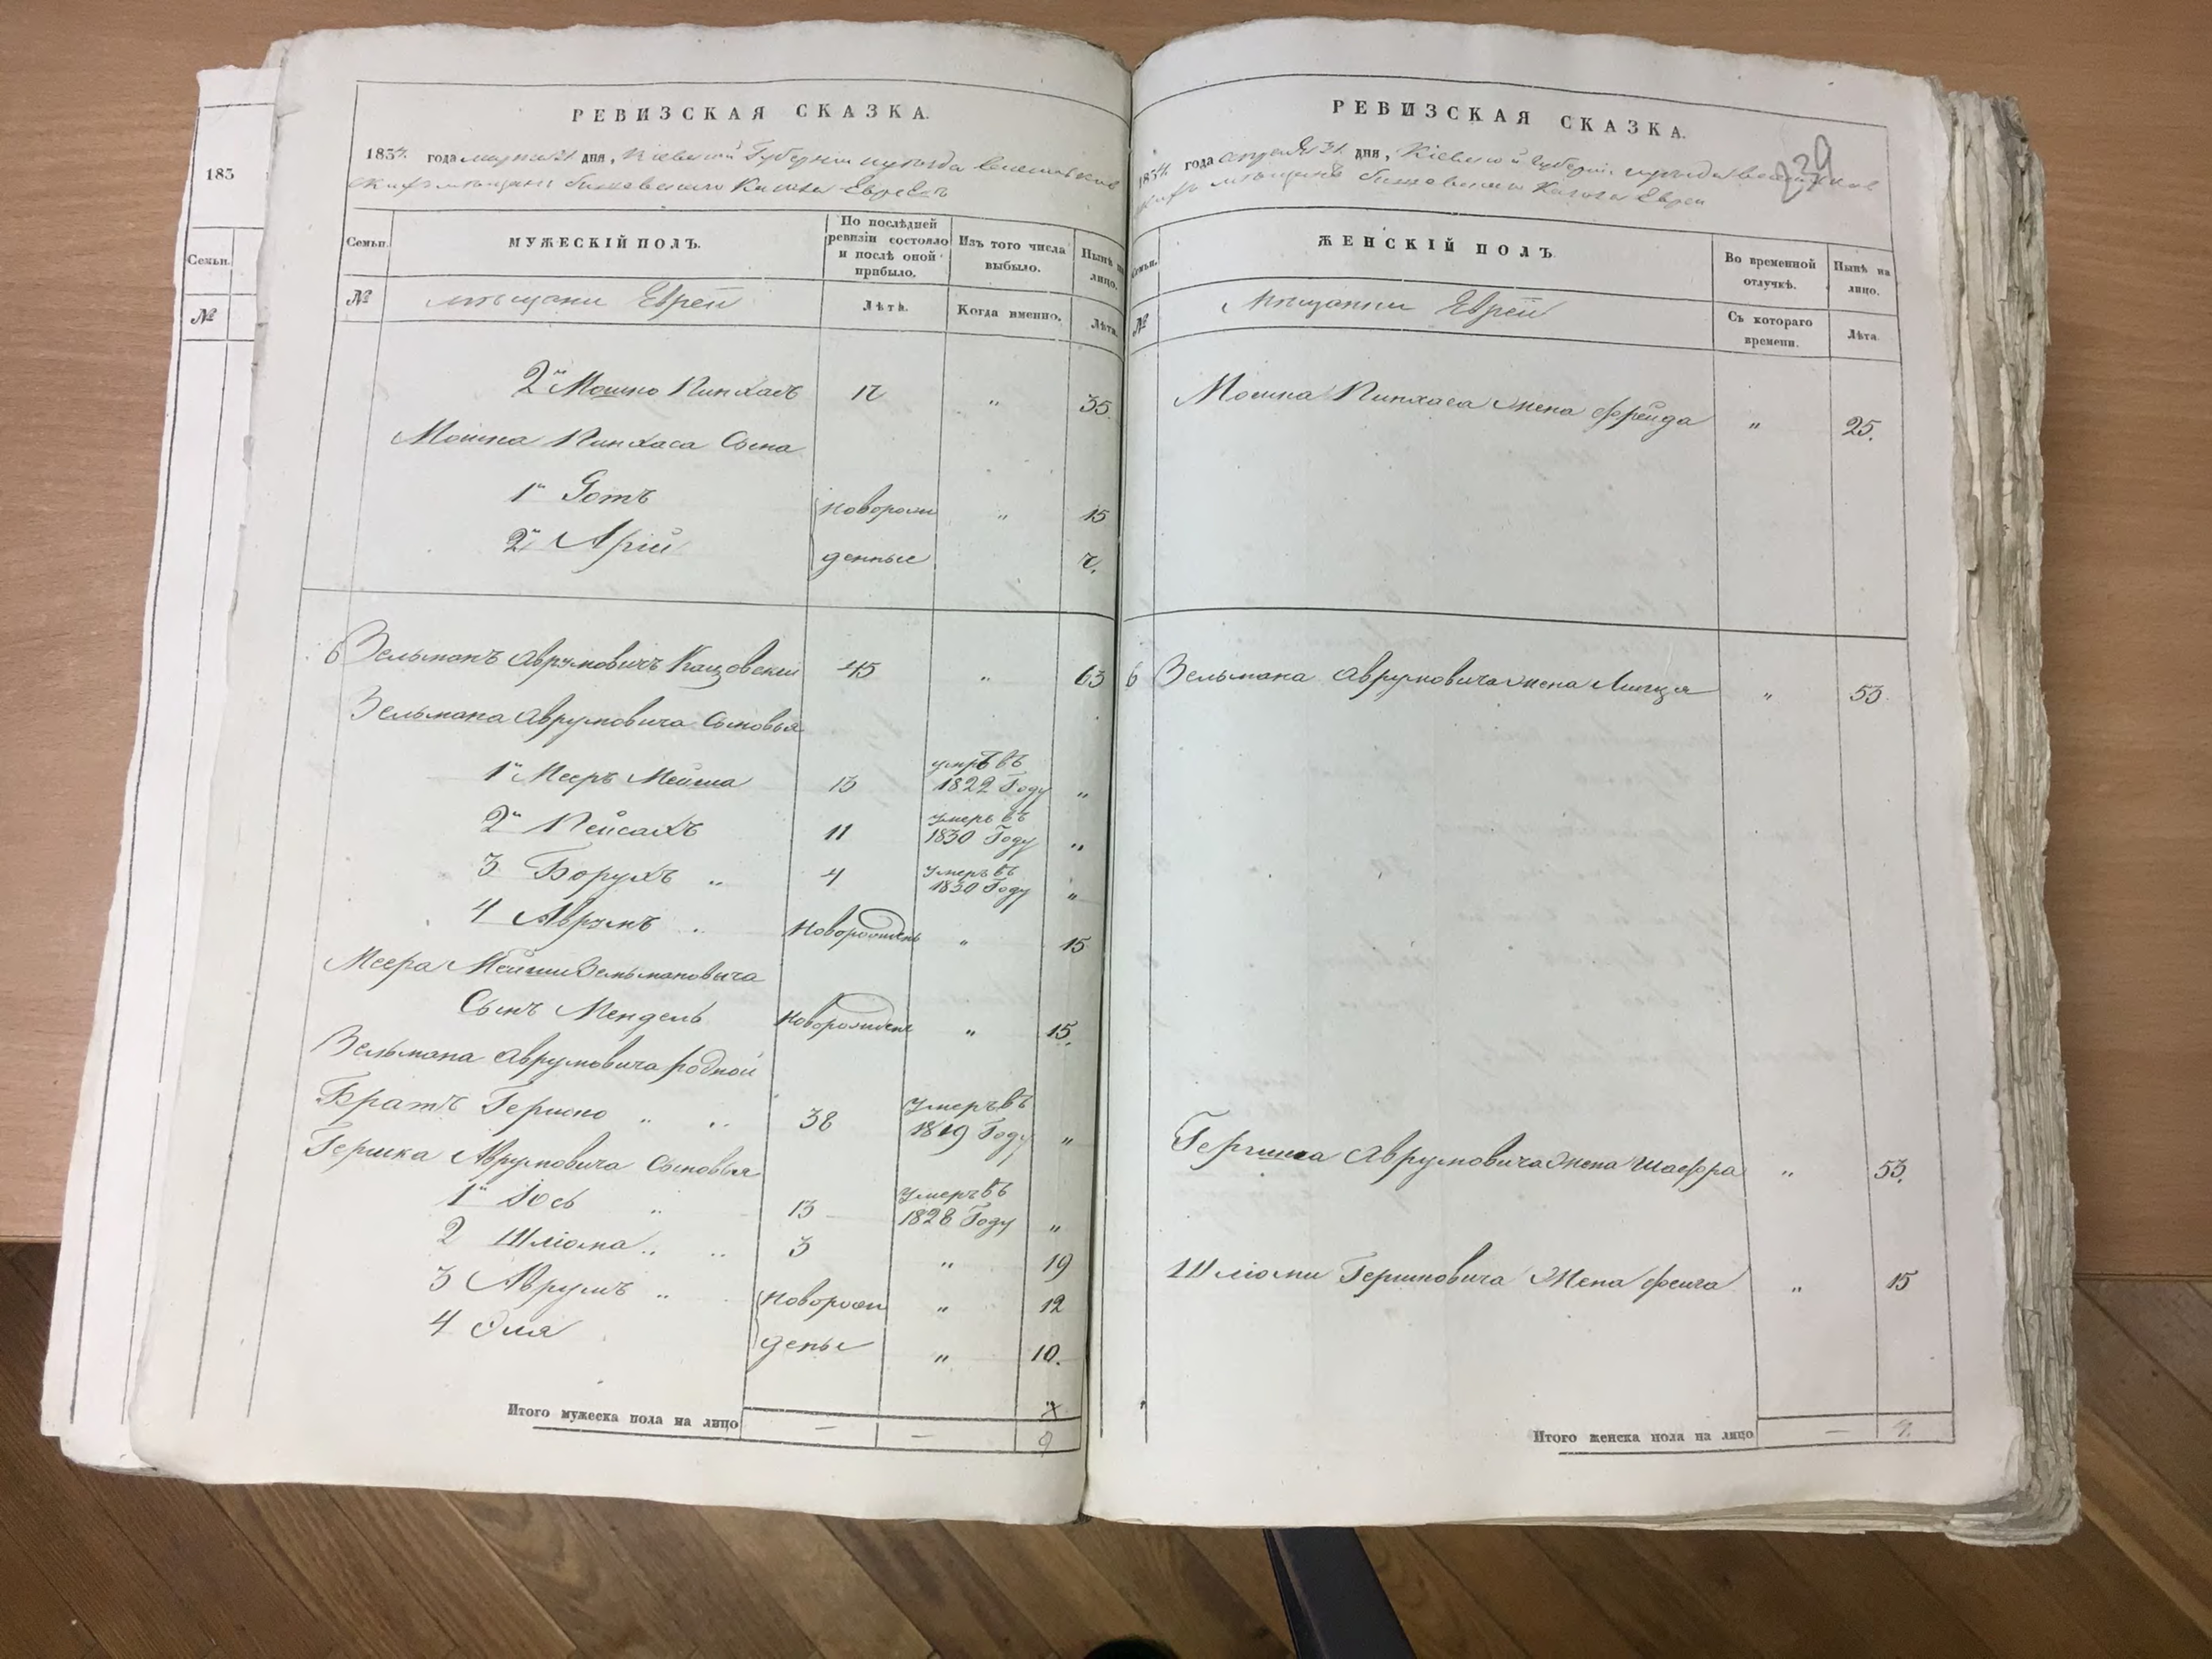 183
Семьи.
№
РЕВИЗСКАЯ СКАЗКА.
1834. года дня, Кіевской Губерніи
мѣщанъ Кагала Евреевъ
Семьи.
МУЖЕСКІЙ ПОЛЪ.
По послѣдней ревизіи состояло и послѣ оной прибыло.
Изъ того числа выбыло.
Нынѣ на лицо.
№
мѣщани Евреи
Лѣта.
Когда именно.
Лѣта.
2й Мошко Пинхасъ " 35.
Мошка Пинхаса Сына
1й новорож " 15
2й Арій денные
6 Зельманъ Аврумовичъ 45 " 63
Зельмана Аврумовича Сыновья
1й Мееръ Мейша 13 умръ въ 1822 Году "
2й Пейсахъ 11 умеръ въ 1830 Году "
3 Борухъ " 4 умеръ въ 1830 Году "
4 Аврумъ новорожденъ " 15
Меера Мейши Зельмановича
Сынъ Мендель новорожденъ " 15.
Зельмана Аврумовича родной
Братъ Гершко " " 38 умеръ въ 1819 Году "
Гершка Аврумовича Сыновья
1й Іось " 13 умеръ въ 1828 Году "
2 Шліома " " 3 " 19
3 Аврумъ " новорож " 12
4 Эля деные " 10.
Итого мужеска пола на лицо — — 9
РЕВИЗСКАЯ СКАЗКА.
239
1834. года апреля дня, Кіевской Губерніи
мѣщанъ Кагала Евреи
Семьи.
ЖЕНСКІЙ ПОЛЪ.
Во временной отлучкѣ.
Нынѣ на лицо.
№
мѣщанки Евреи
Съ котораго времени.
Лѣта.
Мошка Пинхаса жена Фрейда " 25.
6 Зельмана Аврумовича жена " 53
Гершка Аврумовича жена Шаефра " 53.
Шліоми Гершковича Жена Феига " 15
Итого женска пола на лицо — 4.